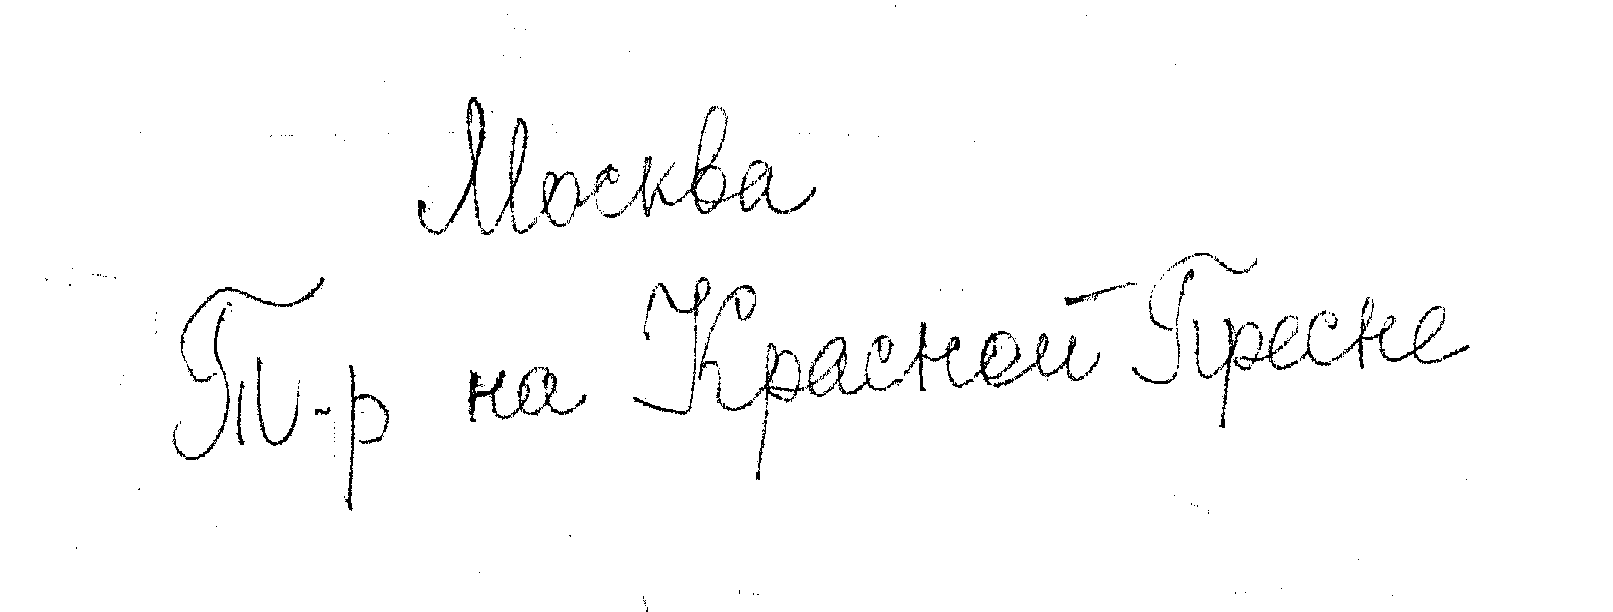 Москва
Т-р на Красной Пресне